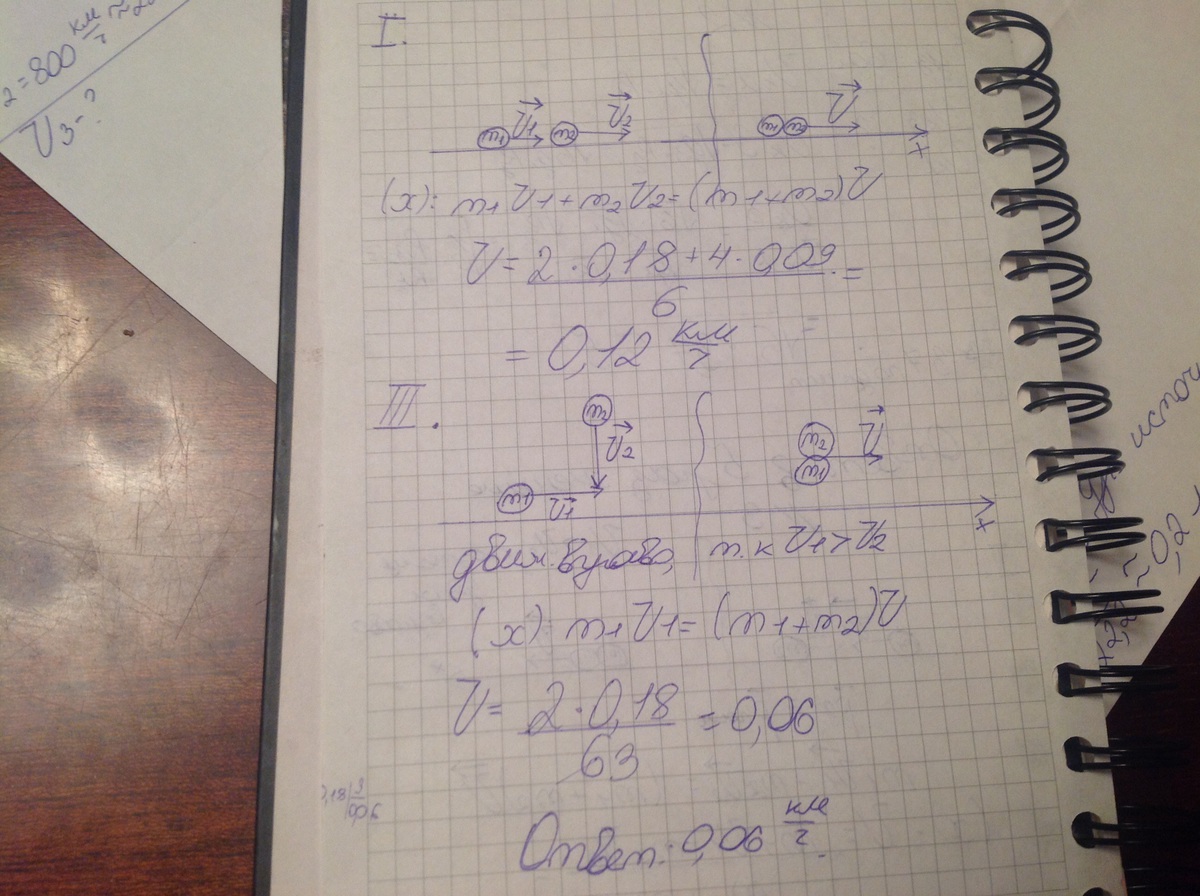 2 = 800 км/г ≈ 2
V3 - ?
I.
m1 V1 m2 V2 m1 m2 V
x
(x): m1V1 + m2V2 = (m1 + m2)V
V = 2 · 0,18 + 4 · 0,09 / 6 =
= 0,12 км/г
III.
m2 V2 m2 V
m1 V1 m1
x
движ. вправо, т.к V1 > V2
(x) m1V1 = (m1 + m2)V
V = 2 · 0,18 / 63 = 0,06
0,06
Ответ: 0,06 км/г.
источ
≈ 0,2